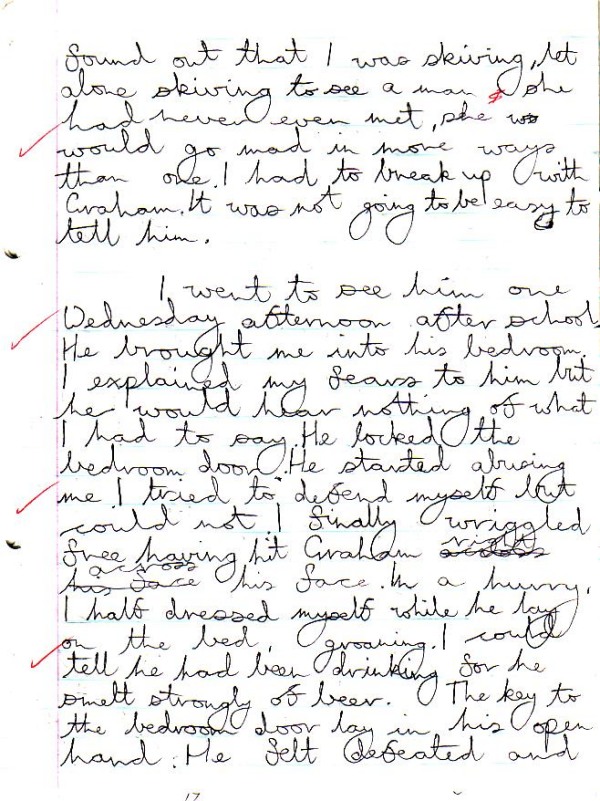 found out that I was skiving, let
alone skiving to see a man she
had never even met, she
would go mad in more ways
than one. I had to break up with
Graham. It was not going to be easy to
tell him.
I went to see him one
Wednesday afternoon after school.
He brought me into his bedroom.
I explained my fears to him but
he would hear nothing of what
I had to say. He locked the
bedroom door. He started abusing
me. I tried to defend myself but
could not. I finally wriggled
free having hit Graham right across
his face. In a hurry,
I half dressed myself while he lay
on the bed, groaning. I could
tell he had been drinking for he
smelt strongly of beer. The key to
the bedroom door lay in his open
hand. He felt defeated and
17